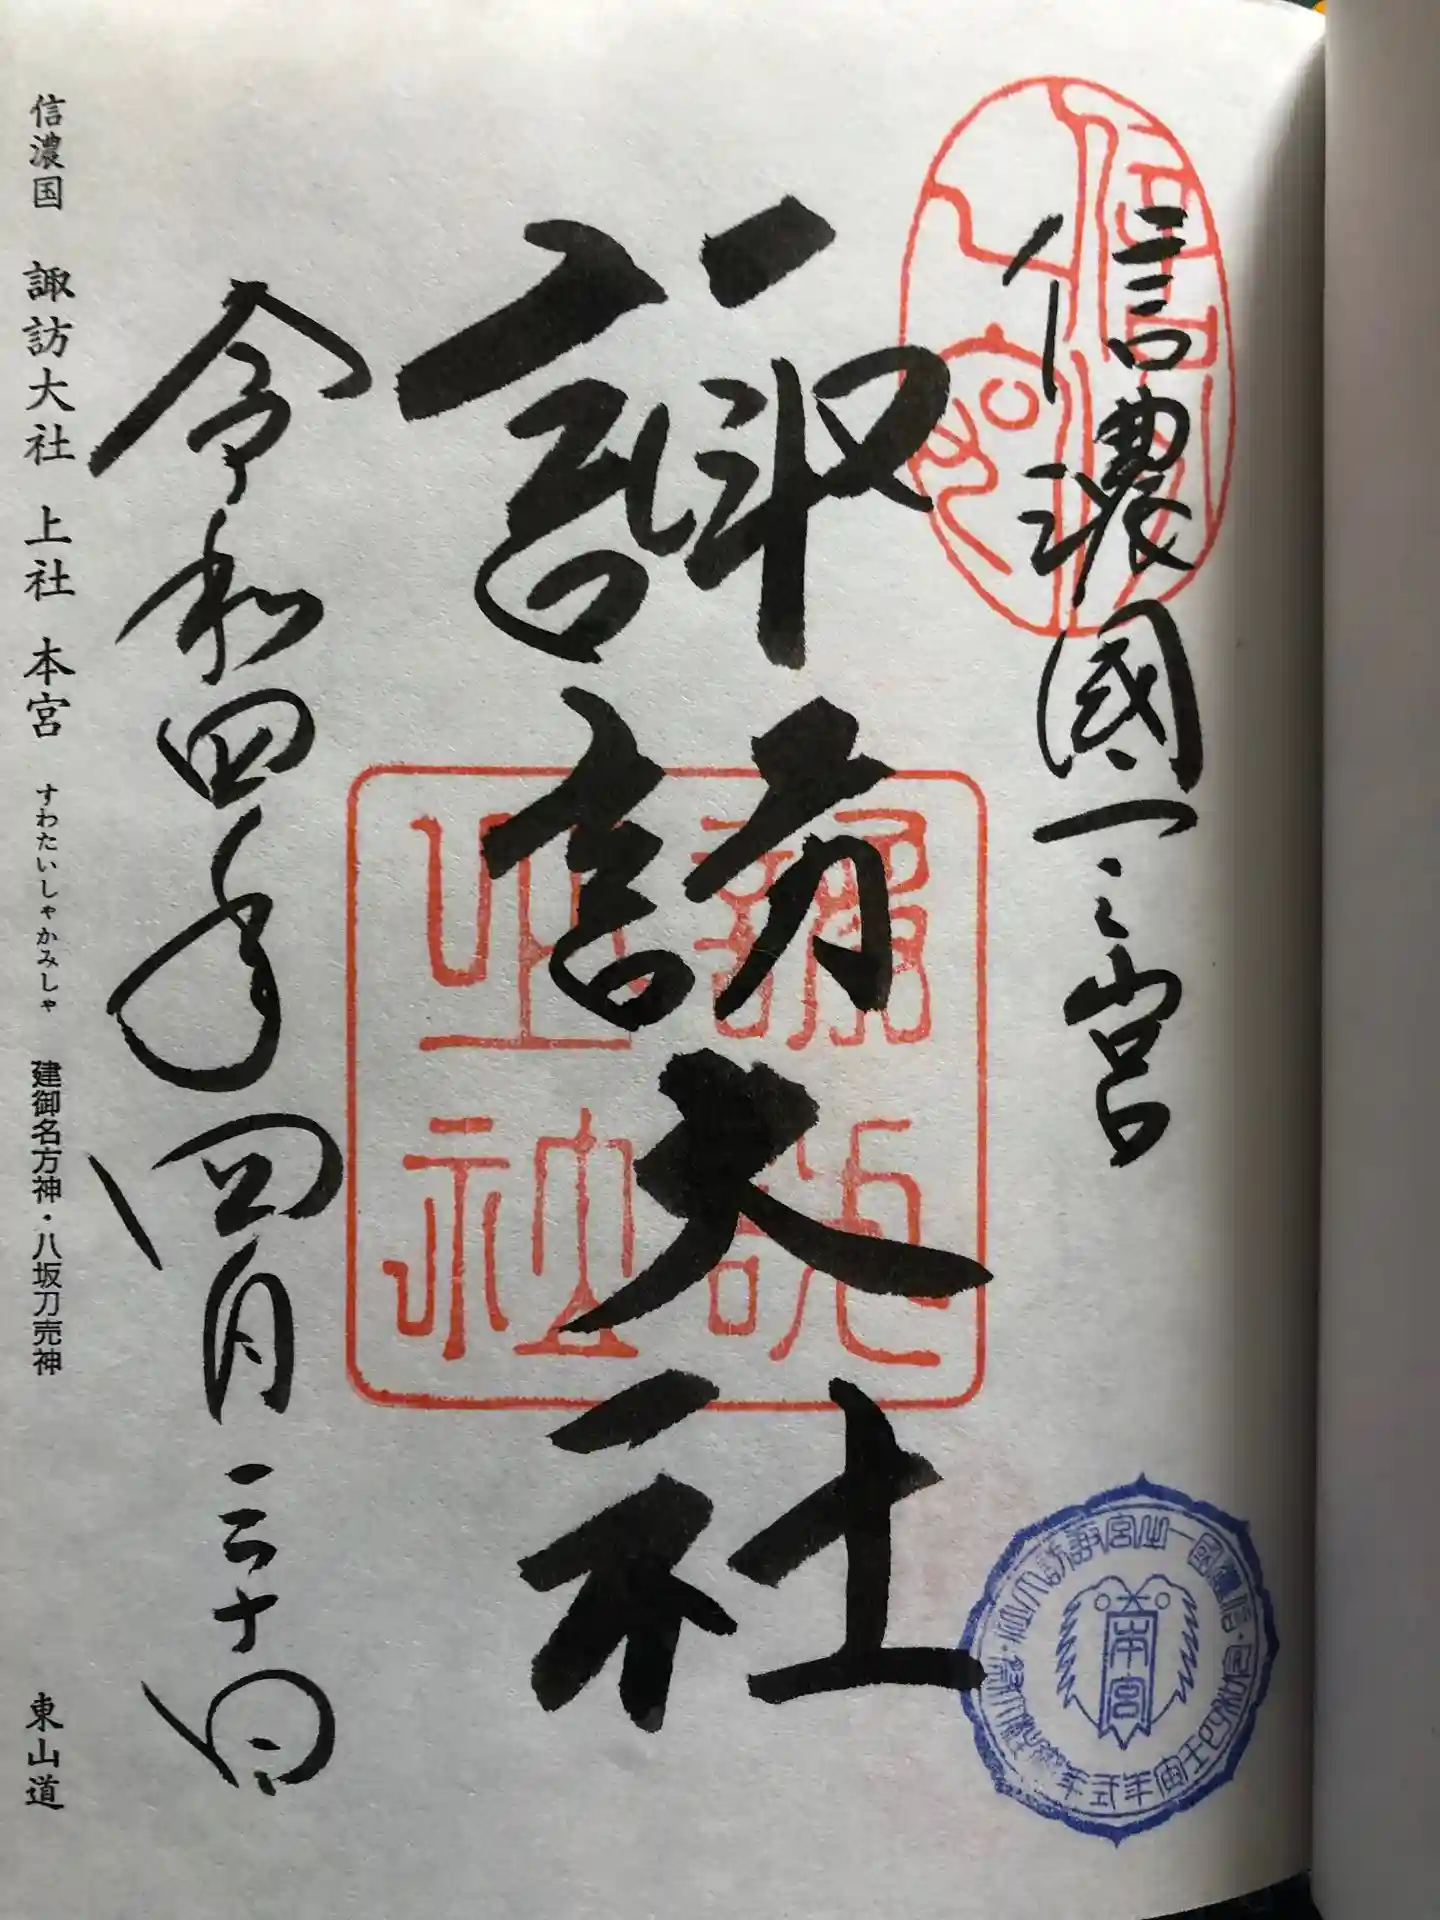 信濃國一之宮
諏訪大社
令和四年四月三十日
信濃国 諏訪大社 上社 本宮 すわたいしゃかみしゃ 建御名方神・八坂刀売神 東山道
本宮